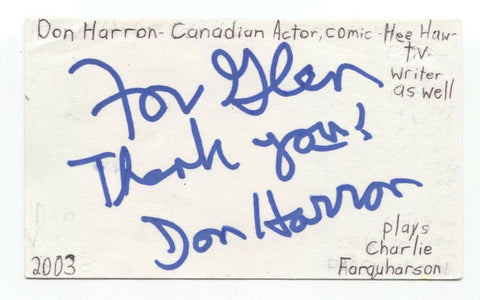 Don Harron - Canadian Actor, comic - Hee Haw -
T.V.
writer
as well
For Glen
Thank you!
Don Harron
plays
Charlie
Farquharson
2003